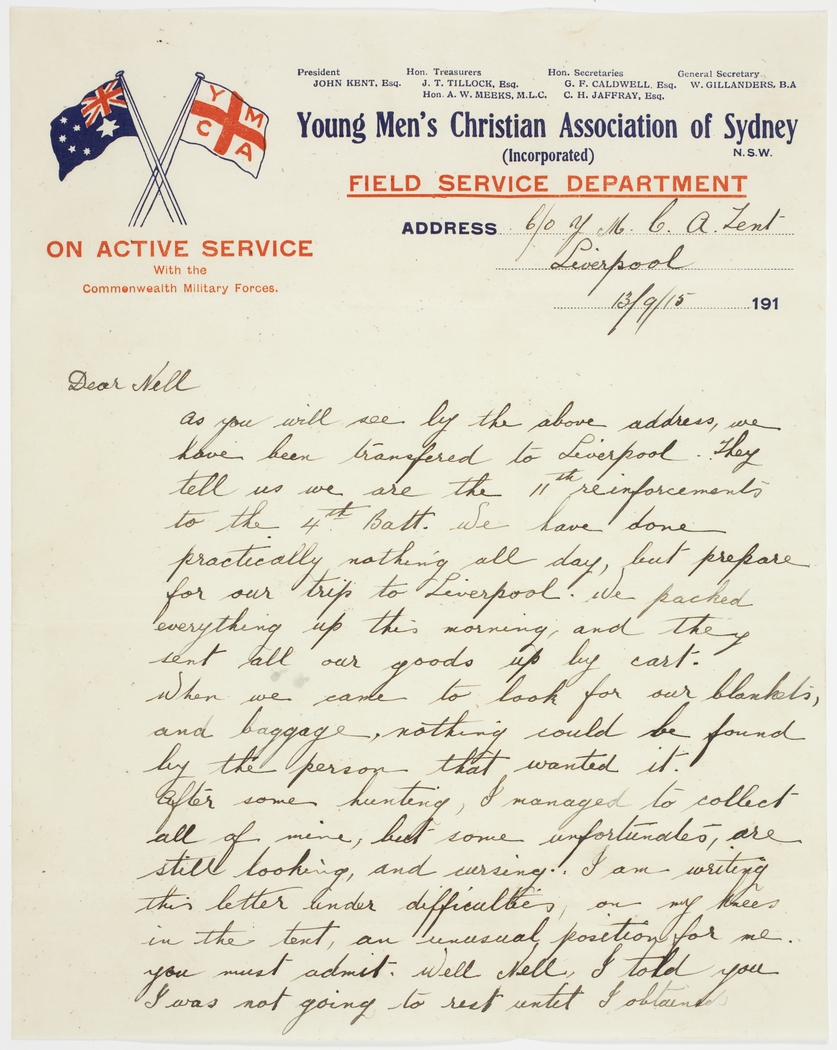 President Hon. Treasurers Hon. Secretaries General Secretary
JOHN KENT, Esq. J. T. TILLOCK, Esq. G. F. CALDWELL, Esq. W. GILLANDERS, B.A
Hon. A. W. MEEKS, M.L.C. C. H. JAFFRAY, Esq.
Y M
C A
Young Men's Christian Association of Sydney
(Incorporated) N.S.W.
FIELD SERVICE DEPARTMENT
ON ACTIVE SERVICE
With the
Commonwealth Military Forces.
ADDRESS c/o Y M. C. A. Tent
Liverpool
13/9/15 191
Dear Nell
As you will see by the above address, we
have been transfered to Liverpool. They
tell us we are the 11th reinforcements
to the 4th Batt. We have done
practically nothing all day, but prepare
for our trip to Liverpool. We packed
everything up this morning, and they
sent all our goods up by cart.
When we came to look for our blankets,
and baggage, nothing could be found
by the person that wanted it.
After some hunting, I managed to collect
all of mine, but some unfortunates, are
still looking, and cursing. I am writing
this letter under difficulties, on my knees
in the tent, an unusual position for me.
you must admit. Well Nell, I told you
I was not going to rest until I obtained